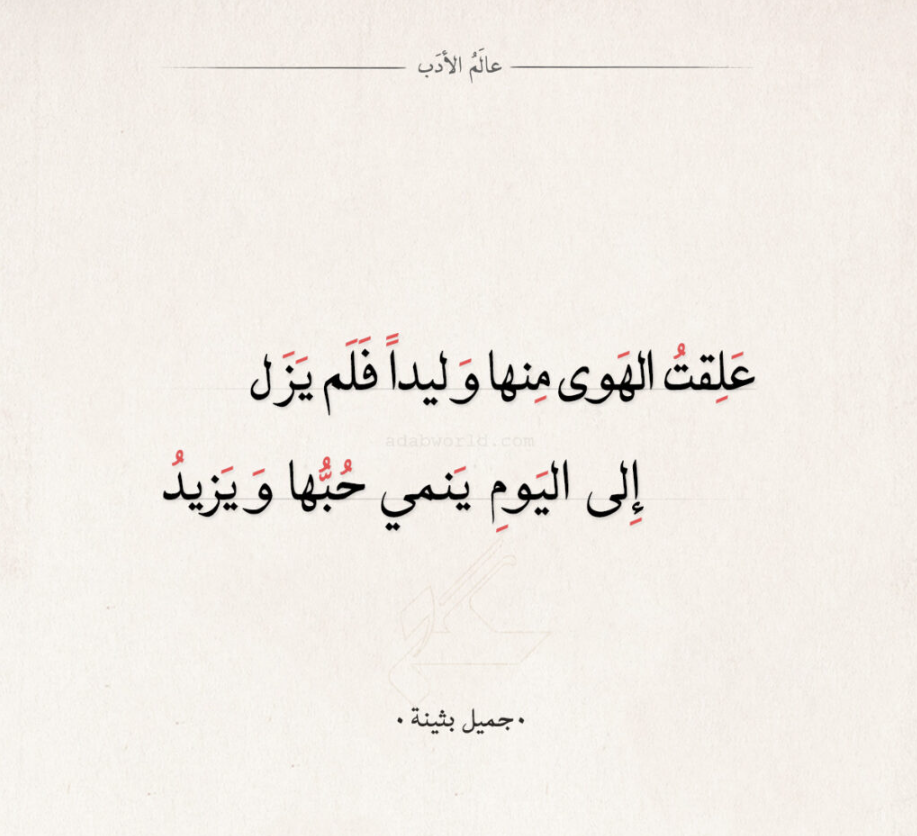 عالَمُ الأدَب
عَلِقتُ الهَوى مِنها وَليداً فَلَم يَزَل
adabworld.com
إِلى اليَومِ يَنمي حُبُّها وَيَزيدُ
•جميل بثينة•